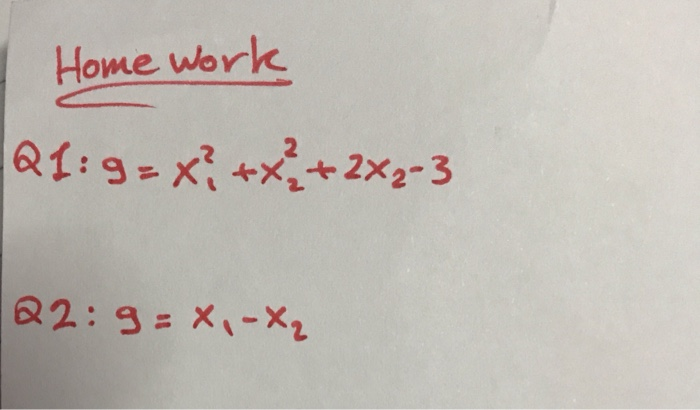 Home work
Q1: g = x₁² + x₂² + 2x₂ - 3
Q2: g = x₁ - x₂